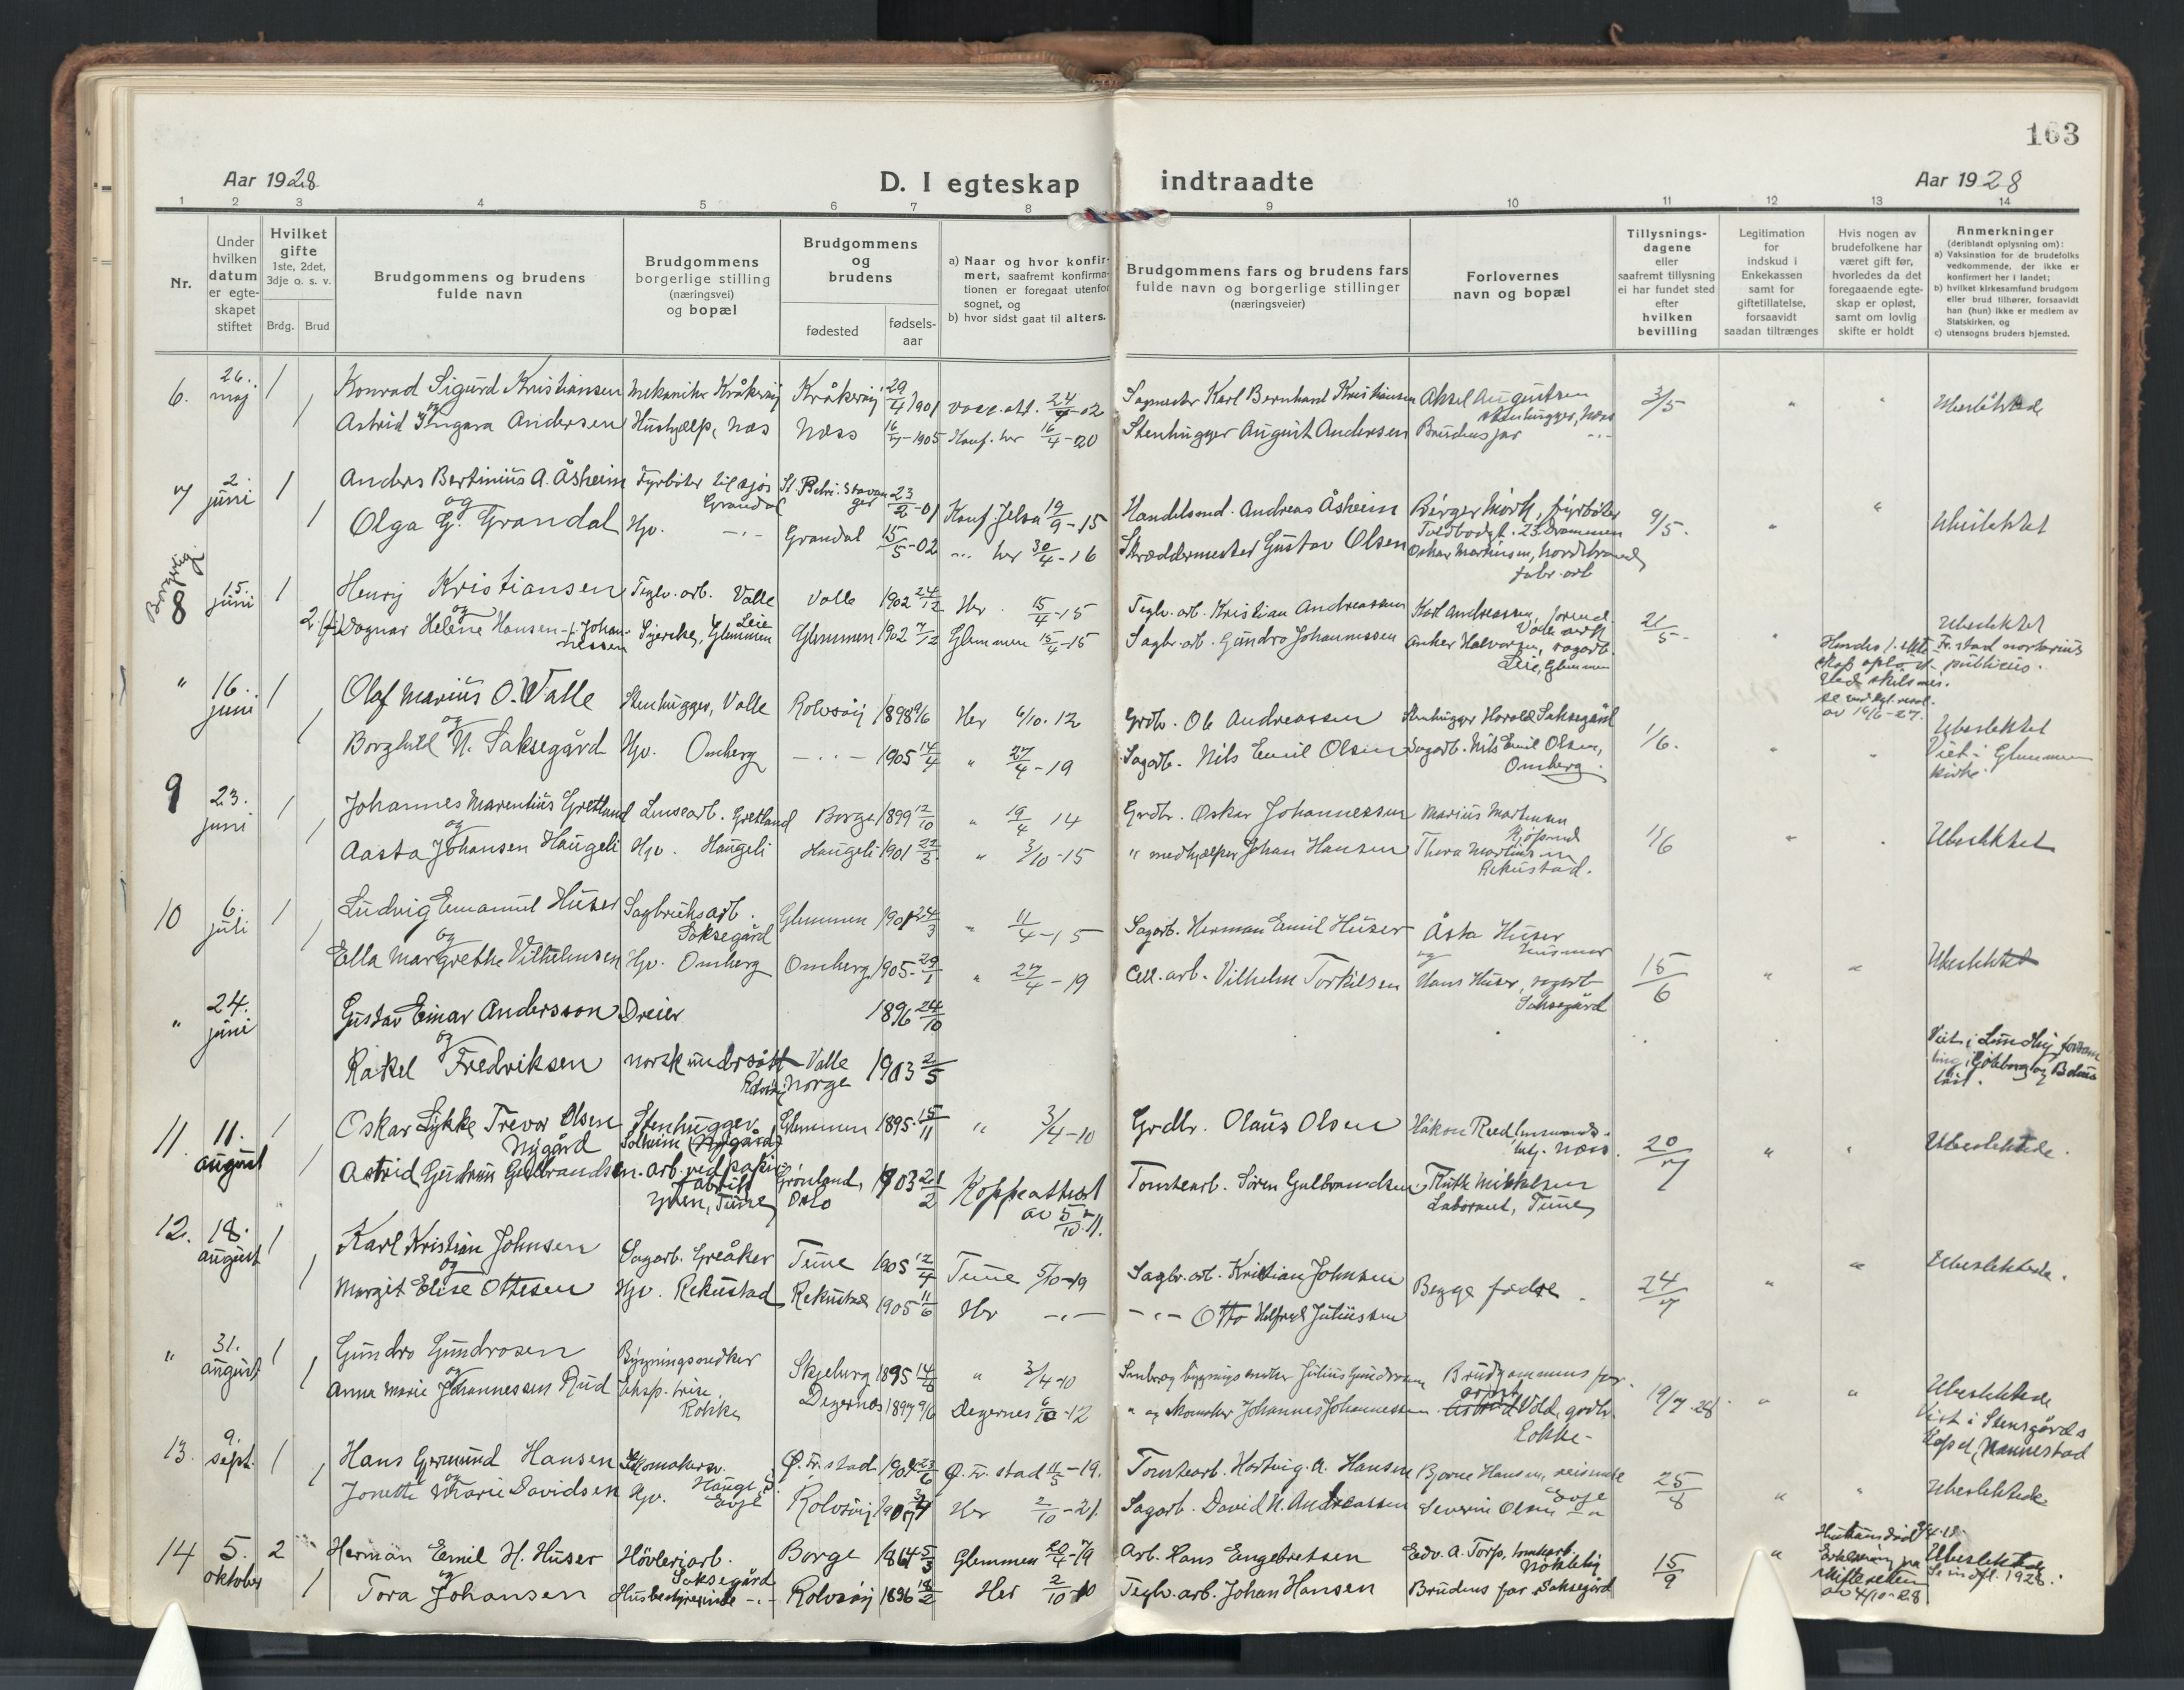 163
Aar 1928
D. I egteskap indtraadte
Aar 1928
1 2 3 4 5 6 7 8 9 10 11 12 13 14
Nr.
Under hvilken datum er egteskapet stiftet
Hvilket gifte 1ste, 2det, 3dje o. s. v.
Brdg. Brud
Brudgommens og brudens fulde navn
Brudgommens borgerlige stilling (næringsvei) og bopæl
Brudgommens og brudens
fødested
fødsels-aar
a) Naar og hvor konfirmert, saafremt konfirmationen er foregaat utenfor sognet, og
b) hvor sidst gaat til alters.
Brudgommens fars og brudens fars fulde navn og borgerlige stillinger (næringsveier)
Forlovernes navn og bopæl
Tillysnings-dagene eller saafremt tillysning ei har fundet sted efter hvilken bevilling
Legitimation for indskud i Enkekassen samt for giftetillatelse, forsaavidt saadan tiltrænges
Hvis nogen av brudefolkene har været gift før, hvorledes da det foregaaende egteskap er opløst, samt om lovlig skifte er holdt
Anmerkninger (deriblandt oplysning om):
a) Vaksination for de brudefolks vedkommende, der ikke er konfirmert her i landet;
b) hvilket kirkesamfund brudgom eller brud tilhører, forsaavidt han (hun) ikke er medlem av Statskirken, og
c) utensogns bruders hjemsted.
6. 26. maj 1 Konrad Sigurd Kristiansen Mekaniker Kråkerøy Kråkerøy 29/4 1901 vacc. att. Sagmester Karl Bernhard Kristiansen Aksel Augustsen stenhugger, Næss 3/5 Ubeslektede
og
1 Astrid Ingara Andersen Hushjælp, Næs Næss 1905 Konf. her 16/4-20 Stenhugger August Andersen Brudens far
7 2. juni 1 Anders Bertinius A. Åsheim Fyrbøter til sjøs Grandal St. Petri. Stavanger 23/2-01 Konf. Jelsa 19/9-15 Handelsmd. Andreas Åsheim Birger Mørk, fyrbøter Toldbodgt. 23. Drammen 9/5. " " Ubeslektet
og
1 Olga G. Grandal Hjv. -"- Grandal 15/5-02 -"- her 30/4-16 Skræddermester Gustav Olsen Oskar Martinsen, Nordstrand, fabr. arb
Borgerlig.
8 15. juni 1 Henry Kristiansen Teglv. arb. Valle Valle 1902 24/12 Her 15/4-15 Teglv. arb. Kristian Andreassen Karl Andreassen, formd. Valle 21/5. " Ubeslektet
og
2. Dagnar Helene Hansen f. Johannessen Syerske, Leie Glemmen Glemmen 1902 7/12 Glemmen 15/4-15 Sagbr. arb. Gundro Johannessen Anker Halvorsen, sagarb. Leie, Glemmen Hendes 1. ekteskap opløst ved skilsmisse av 16/6-27. Fr.stad notarius publicus.
" 16. juni 1 Olaf Marius O. Valle Stenhugger, Valle Rolvsøy 1898 9/6 Her 6/10. 12 Grdbr. Ole Andreassen Stenhugger Harald Saksegård 1/6. " " Ubeslektet
og
1 Borghild N. Saksegård Hjv. Omberg -"- 1905 14/4 " 27/4-19 Sagarb. Nils Emil Olsen Sagarb. Nils Emil Olsen, Omberg. Viet i Glemmen kirke.
9 23. juni 1 Johannes Marentius Gretland Lensearb. Gretland Borge 1899 12/10 " 19/4 14 Grdbr. Oskar Johannessen Marius Martinsen 11/6 " " Ubeslektet
og
1 Aasta Johansen Haugeli Hjv. Haugeli Haugeli 1901 22/3 " 3/10-15 " medhjælper Johan Hansen Thora Martinsen Rekustad.
10 6. juli 1 Ludvig Emanuel Huser Sagbruksarb. Saksegård Glemmen 1901 24/3 " 11/4-15 Sagarb. Herman Emil Huser Åsta Huser husmor
og
1 Ella Margrethe Vilhelmsen Hjv. Omberg Omberg 1905-29/1 " 27/4-19 Cell. arb. Vilhelm Torkilsen og Hans Huser, sagarb Saksegård 15/6 " " Ubeslektet
" 24. juni Gustav Einar Andersson Dreier 1896 24/10
og
Rakel Fredriksen norsk undersått Valle Rolvsøy, Norge 1903 2/5 Viet i Lundby forsamling i Göteborg og Bohus län.
11. 11. august 1 Oskar Lykke Trevor Olsen Nygård Stenhugger Solheim (Nygård) Glemmen 1895 15/11 " 3/4-10 Grdbr. Olaus Olsen Håkon Reed Næss 20/7 " " Ubeslektede.
1 Astrid Gudrun Gulbrandsen arb. ved papirfabrikk, Tune Grönland, Oslo 1903 21/2 Koppeattest av 5/10-11. Tomtearb. Sören Gulbrandsen Ruth Mikkelsen Laborant, Tune
12. 18. august 1 Karl Kristian Johnsen Sagarb. Greåker Tune 1905 12/4 Tune 5/10-19 Sagbr. arb. Kristian Johnsen Begge fedre 24/7 " " Ubeslektede.
og
1 Margit Elise Ottesen Hjv. Rekustad Rekustad 1905 11/6 Her -"- -"- Otto Hilfred Juliussen
" 31. august 1 Gundro Gundrosen Bygningssnedker Skjeberg 1895 14/8 " 3/4-10 Småbr. og bygningssnedker Julius Gundrosen Brudgommens far 19/7-28 " " Ubeslektede
og
1 Anna Marie Johannessen Rud Rokke Degernes 1897 9/6 Degernes 6/10-12 " og skomaker Johannes Johannessen Vold, grdbr. Rokke Viet i Stensgårds kapel, Nannestad
13. 9. sept. 1 Hans Germund Hansen Skomakersv. Hauge, S. Ø. Fr.stad 1901 23/6 Ø. Fr.stad 11/5-19. Tomtearb. Hartvig A. Hansen Bjarne Hansen, reisende 25/8 " " Ubeslektede
og
1 Jonette Marie Davidsen Hjv. Evje Rolvsøy 1907 Her 2/10-21. Sagarb. David N. Andreassen Severin Olsen Evje
14 5. oktober 2 Herman Emil H. Huser Høvleriarb. Saksegård Borge 1864 5/3 Glemmen 20/4-79 Arb. Hans Engebretsen Edv. A. Torp, tomtearb. Nøkleby 15/9 " Hustruen død 9/4-18. Erklæring fra skifteretten av 4/10-28 Ubeslektede
og
1 Tora Johansen Husbestyrerinde -"- Rolvsøy 1896 18/2 Her 2/10-10 Teglv. arb. Johan Hansen Brudens far, Saksegård